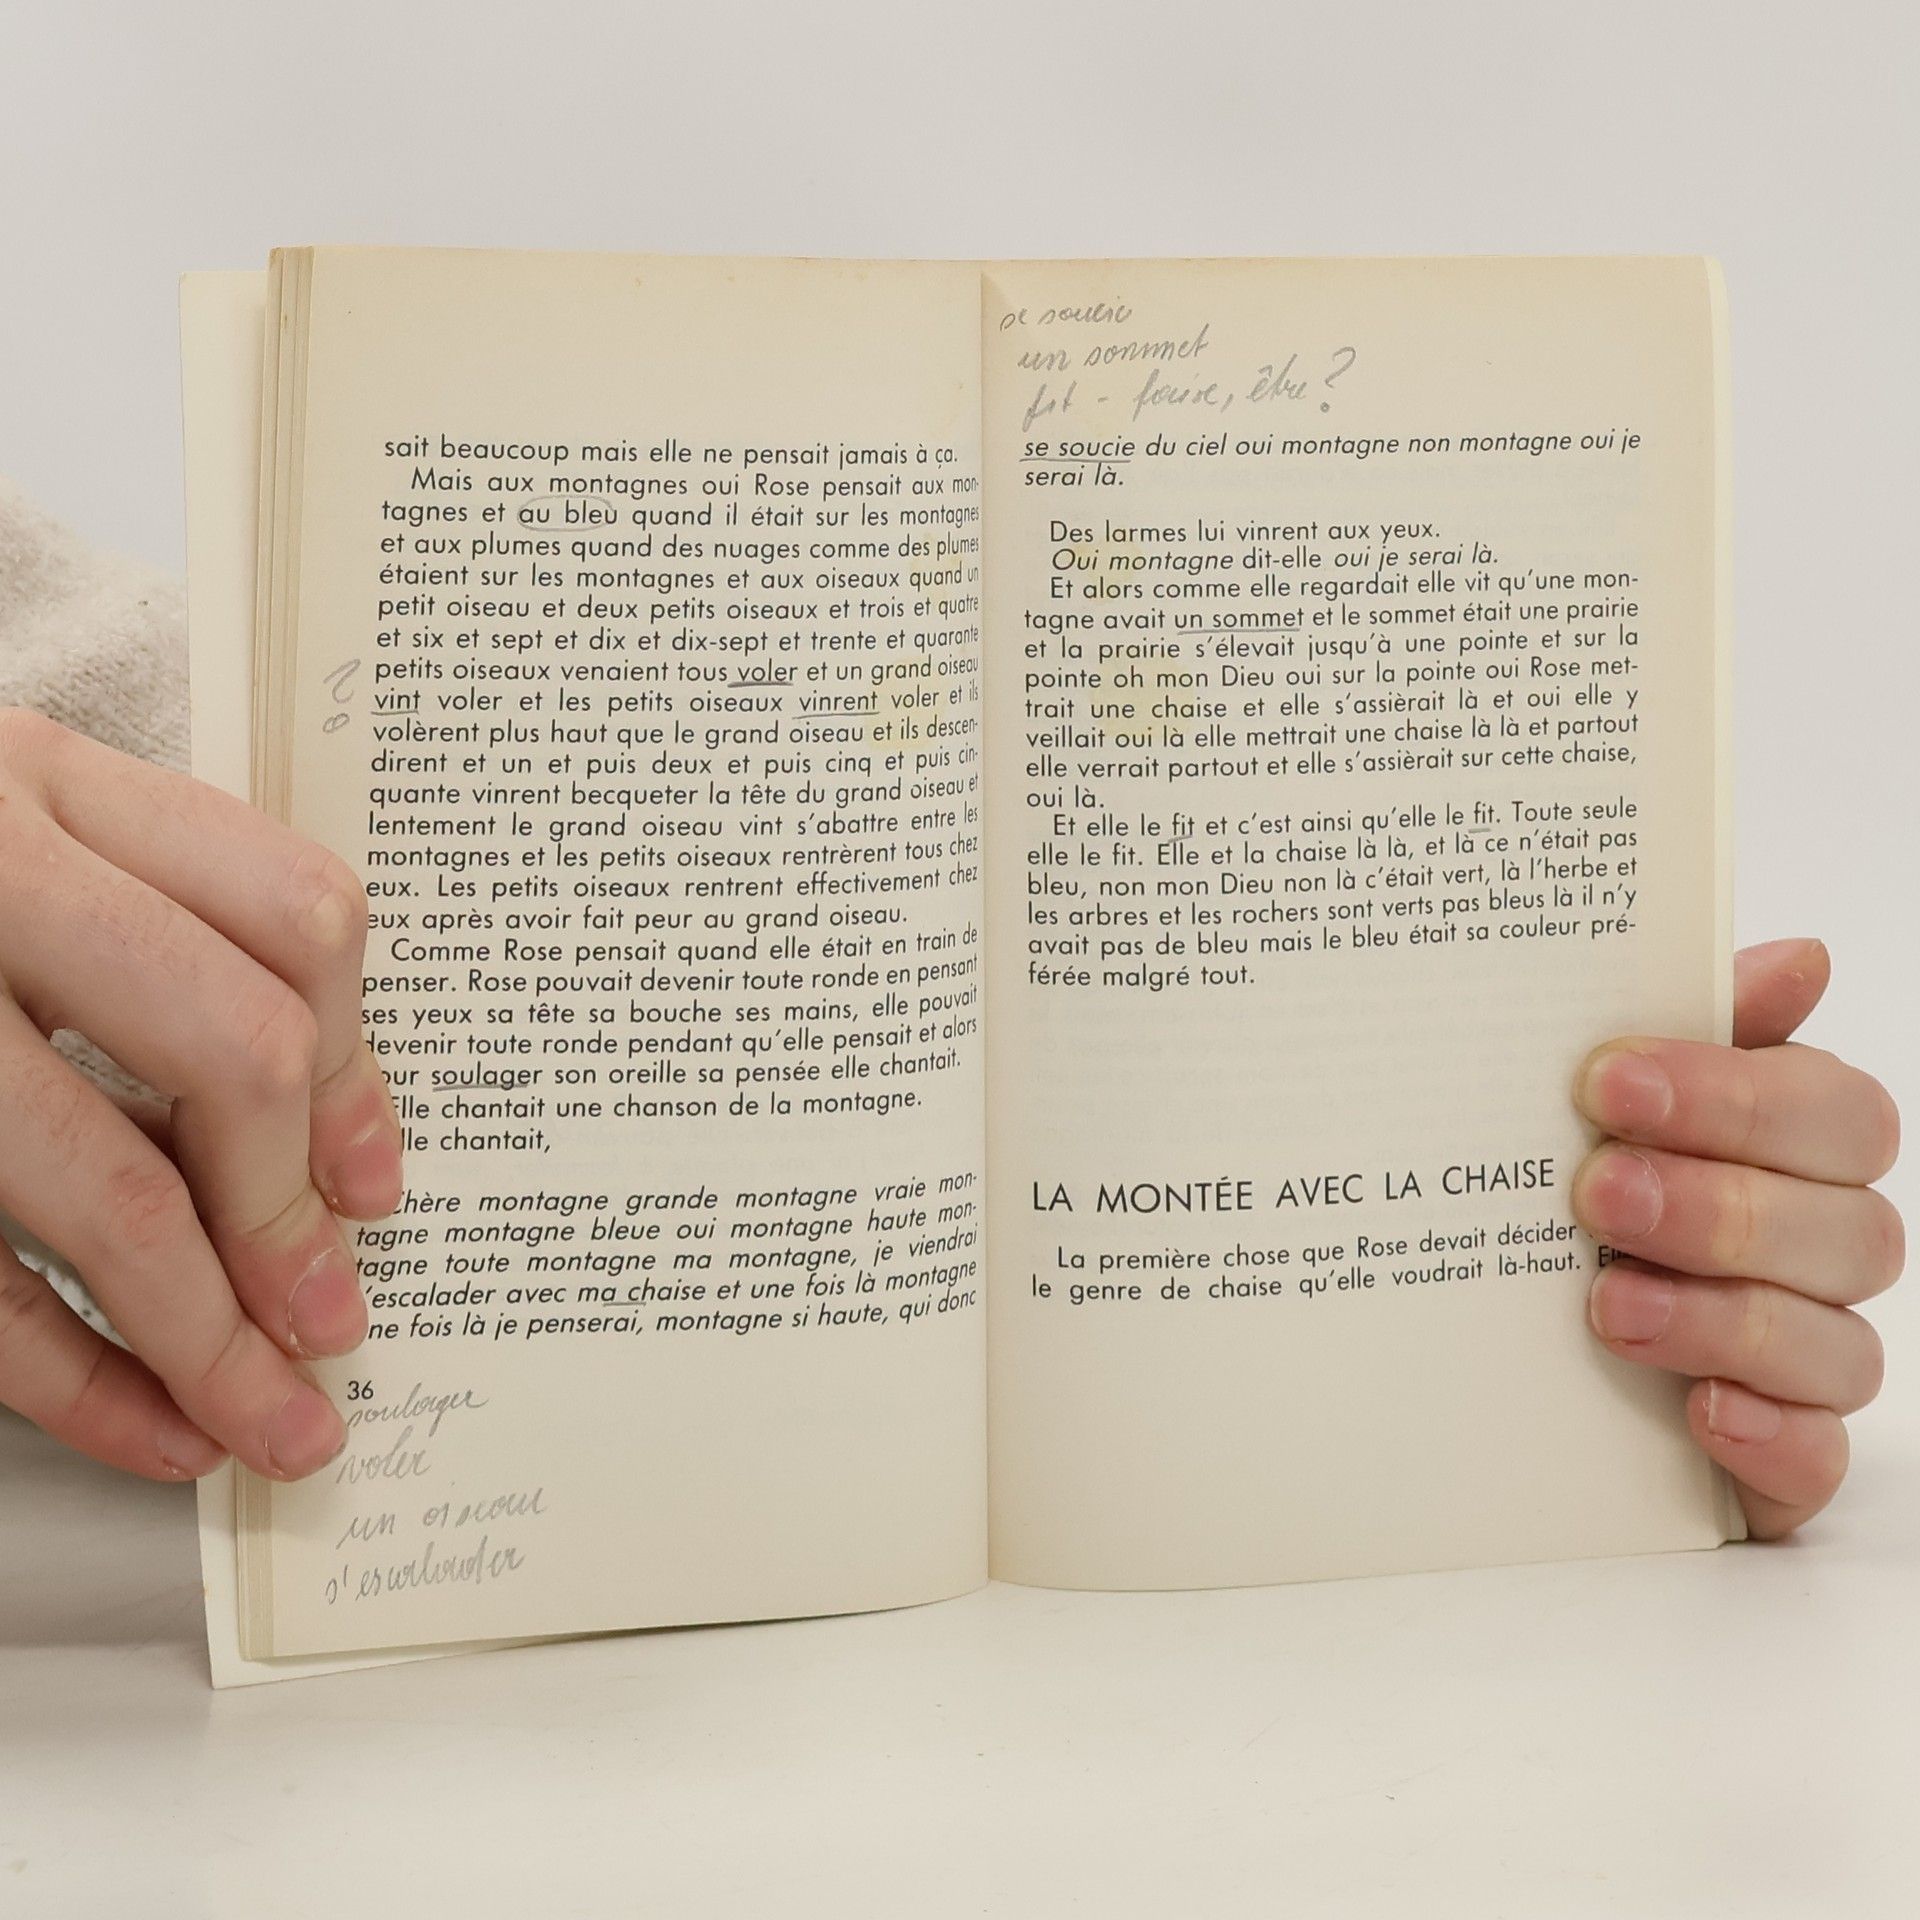 sait beaucoup mais elle ne pensait jamais à ça.
Mais aux montagnes oui Rose pensait aux mon-
tagnes et au bleu quand il était sur les montagnes
et aux plumes quand des nuages comme des plumes
étaient sur les montagnes et aux oiseaux quand un
petit oiseau et deux petits oiseaux et trois et quatre
et six et sept et dix et dix-sept et trente et quarante
petits oiseaux venaient tous voler et un grand oiseau
?
vint voler et les petits oiseaux vinrent voler et ils
volèrent plus haut que le grand oiseau et ils descen-
dirent et un et puis deux et puis cinq et puis cin-
quante vinrent becqueter la tête du grand oiseau et
lentement le grand oiseau vint s'abattre entre les
montagnes et les petits oiseaux rentrèrent tous chez
eux. Les petits oiseaux rentrent effectivement chez
eux après avoir fait peur au grand oiseau.
Comme Rose pensait quand elle était en train de
penser. Rose pouvait devenir toute ronde en pensant
ses yeux sa tête sa bouche ses mains, elle pouvait
devenir toute ronde pendant qu'elle pensait et alors
our soulager son oreille sa pensée elle chantait.
Elle chantait une chanson de la montagne.
lle chantait,
Chère montagne grande montagne vraie mon-
tagne montagne bleue oui montagne haute mon-
tagne toute montagne ma montagne, je viendrai
'escalader avec ma chaise et une fois là montagne
ne fois là je penserai, montagne si haute, qui donc
36
soulager
voler
un oiseau
s'escalader
se soucie
un sommet
fit - faire, être?
se soucie du ciel oui montagne non montagne oui je
serai là.
Des larmes lui vinrent aux yeux.
Oui montagne dit-elle oui je serai là.
Et alors comme elle regardait elle vit qu'une mon-
tagne avait un sommet et le sommet était une prairie
et la prairie s'élevait jusqu'à une pointe et sur la
pointe oh mon Dieu oui sur la pointe oui Rose met-
trait une chaise et elle s'assièrait là et oui elle y
veillait oui là elle mettrait une chaise là là et partout
elle verrait partout et elle s'assièrait sur cette chaise,
oui là.
Et elle le fit et c'est ainsi qu'elle le fit. Toute seule
elle le fit. Elle et la chaise là là, et là ce n'était pas
bleu, non mon Dieu non là c'était vert, là l'herbe et
les arbres et les rochers sont verts pas bleus là il n'y
avait pas de bleu mais le bleu était sa couleur pré-
férée malgré tout.
LA MONTÉE AVEC LA CHAISE
La première chose que Rose devait décider
le genre de chaise qu'elle voudrait là-haut.